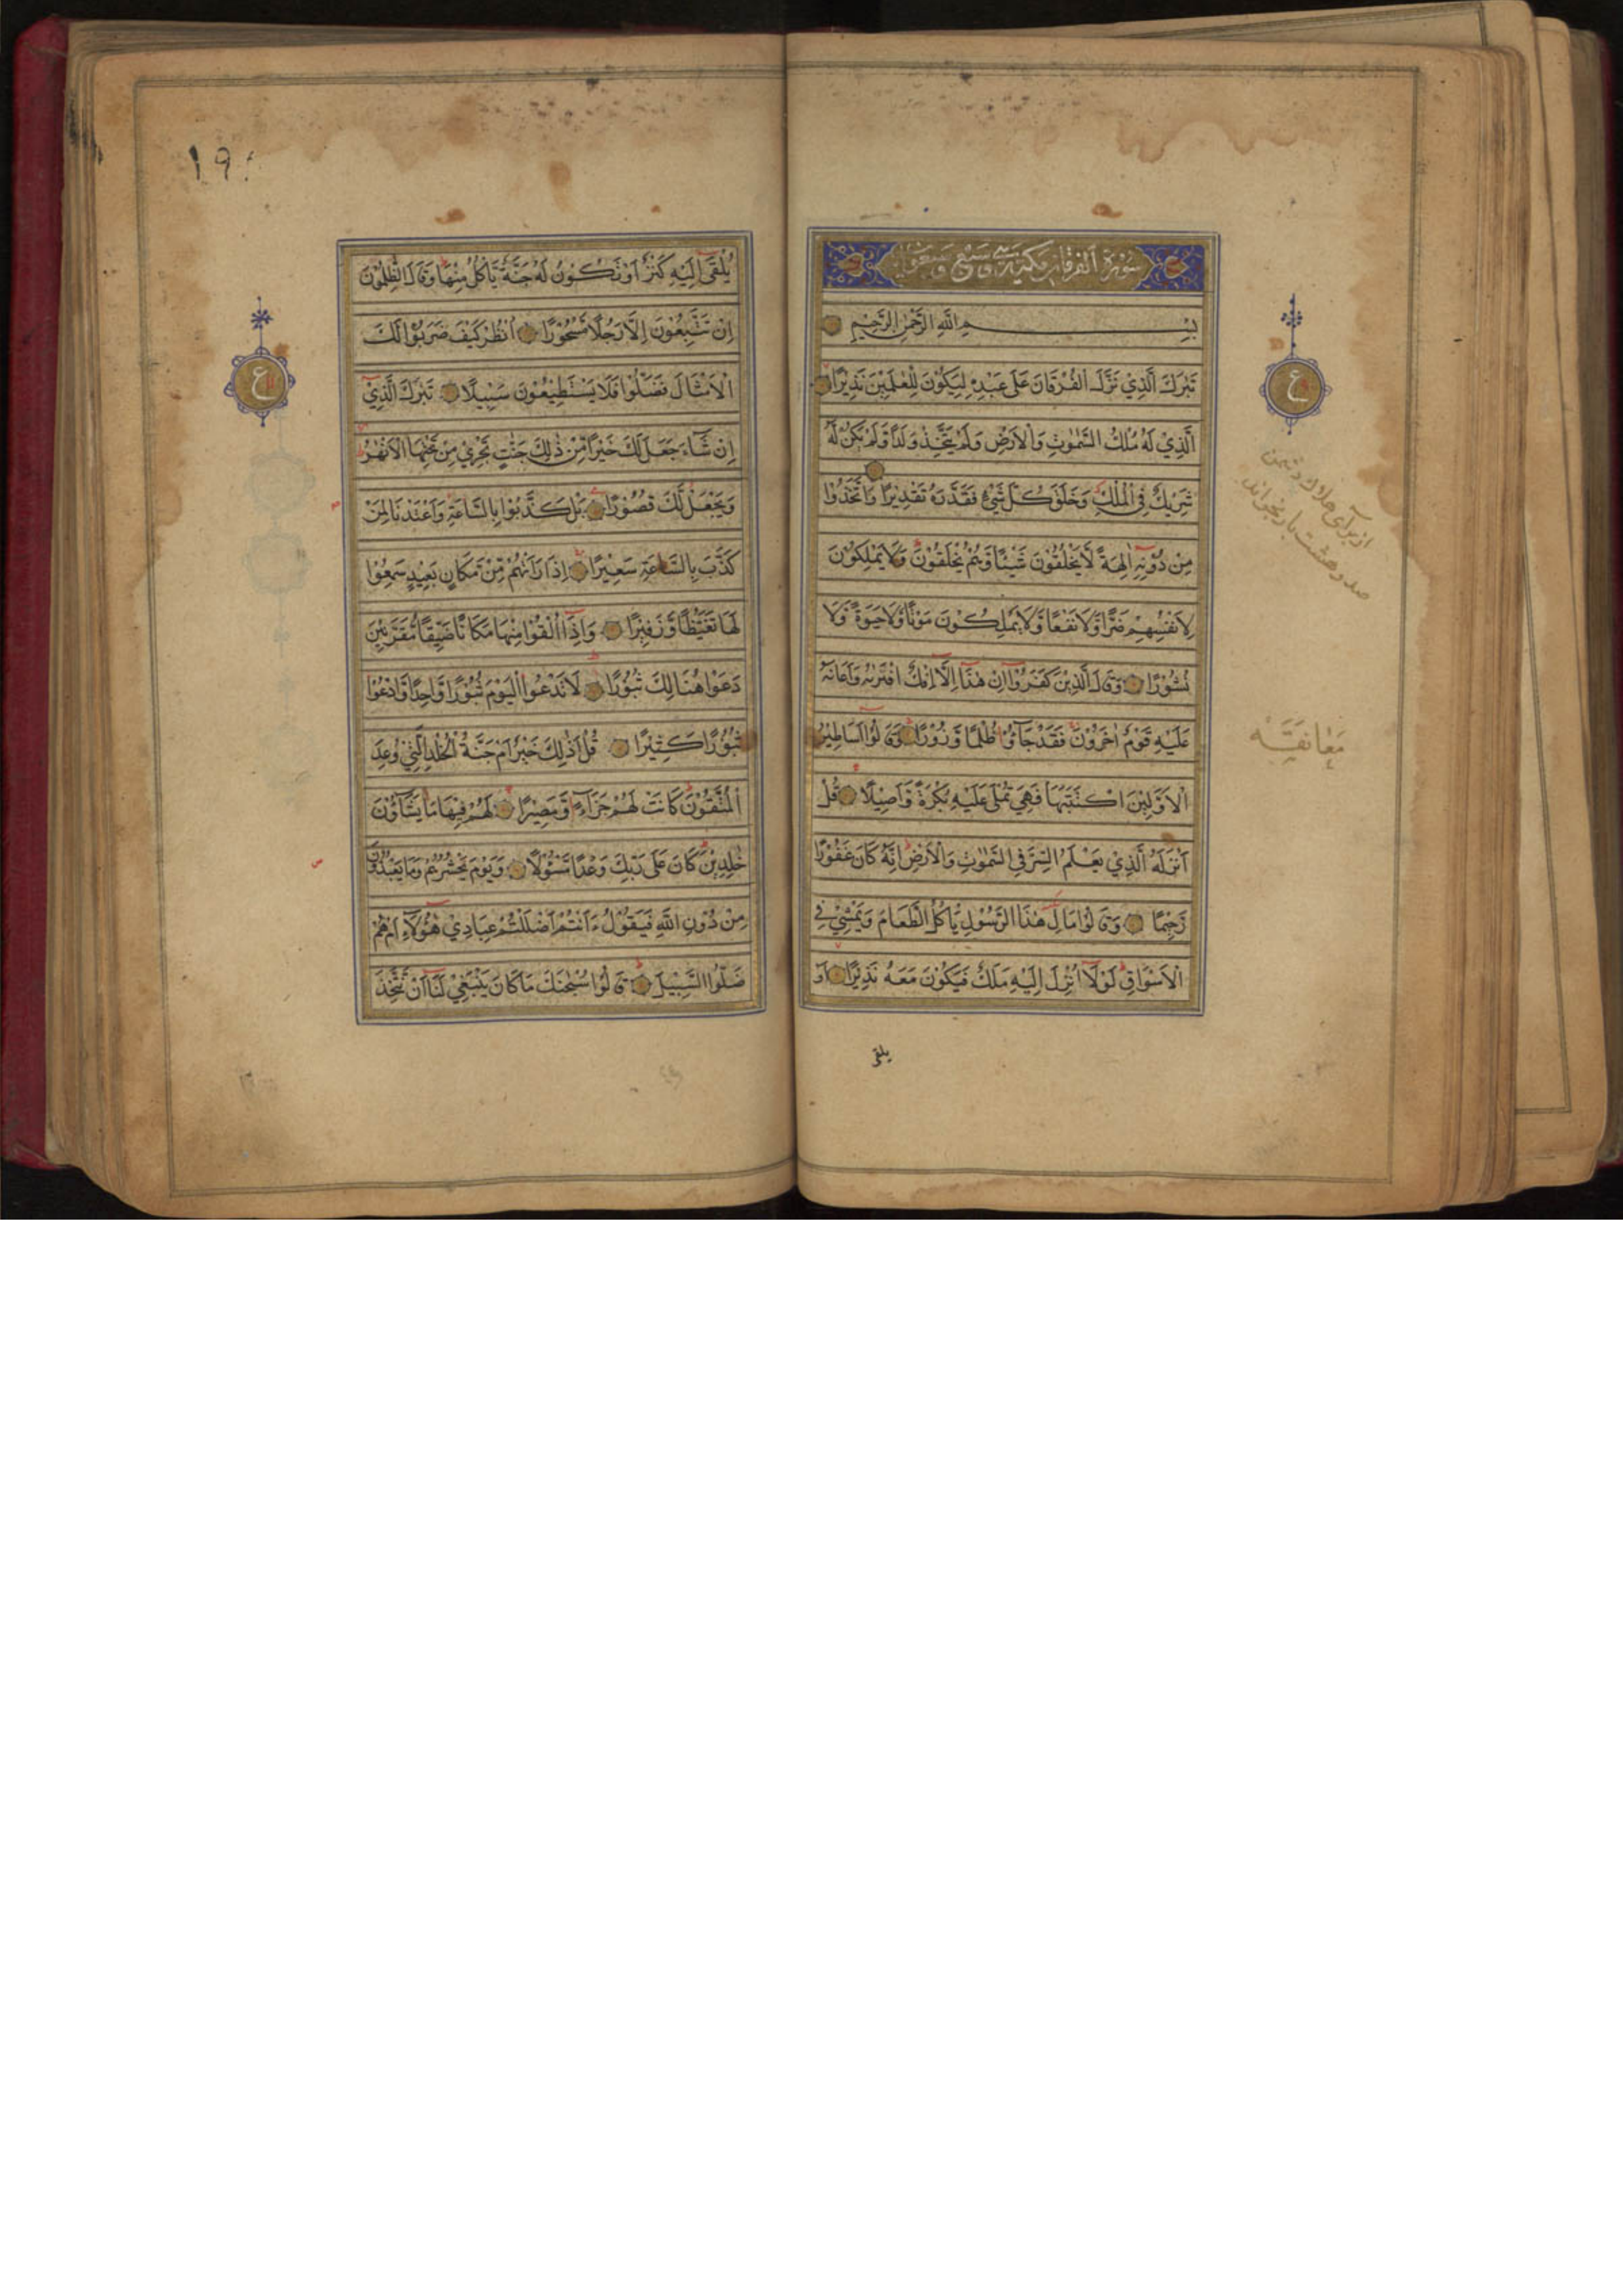 سورة الفرقان مكية وهي سبع وسبعون
بسم الله الرحمن الرحيم
تَبٰرَكَ الَّذِيْ نَزَّلَ الْفُرْقَانَ عَلٰى عَبْدِهٖ لِيَكُوْنَ لِلْعٰلَمِيْنَ نَذِيْرًا
الَّذِيْ لَهٗ مُلْكُ السَّمٰوٰتِ وَالْاَرْضِ وَلَمْ يَتَّخِذْ وَلَدًا وَّلَمْ يَكُنْ لَّهٗ
شَرِيْكٌ فِي الْمُلْكِ وَخَلَقَ كُلَّ شَيْءٍ فَقَدَّرَهٗ تَقْدِيْرًا وَاتَّخَذُوْا
مِنْ دُوْنِهٖٓ اٰلِهَةً لَّا يَخْلُقُوْنَ شَيْئًا وَّهُمْ يُخْلَقُوْنَ وَلَا يَمْلِكُوْنَ
لِاَنْفُسِهِمْ ضَرًّا وَّلَا نَفْعًا وَّلَا يَمْلِكُوْنَ مَوْتًا وَّلَا حَيٰوةً وَّلَا
نُشُوْرًا وَقَالَ الَّذِيْنَ كَفَرُوْٓا اِنْ هٰذَآ اِلَّآ اِفْكٌ افْتَرٰىهُ وَاَعَانَهٗ
عَلَيْهِ قَوْمٌ اٰخَرُوْنَ فَقَدْ جَآءُوْ ظُلْمًا وَّزُوْرًا وَقَالُوْٓا اَسَاطِيْرُ
الْاَوَّلِيْنَ اكْتَتَبَهَا فَهِيَ تُمْلٰى عَلَيْهِ بُكْرَةً وَّاَصِيْلًا قُلْ
اَنْزَلَهُ الَّذِيْ يَعْلَمُ السِّرَّ فِي السَّمٰوٰتِ وَالْاَرْضِ اِنَّهٗ كَانَ غَفُوْرًا
رَّحِيْمًا وَقَالُوْا مَالِ هٰذَا الرَّسُوْلِ يَاْكُلُ الطَّعَامَ وَيَمْشِيْ فِي
الْاَسْوَاقِ لَوْلَآ اُنْزِلَ اِلَيْهِ مَلَكٌ فَيَكُوْنَ مَعَهٗ نَذِيْرًا اَوْ
يلقى
ع
معانقه
١٩٠
ع
يُلْقٰٓى اِلَيْهِ كَنْزٌ اَوْ تَكُوْنُ لَهٗ جَنَّةٌ يَّاْكُلُ مِنْهَا وَقَالَ الظّٰلِمُوْنَ
اِنْ تَتَّبِعُوْنَ اِلَّا رَجُلًا مَّسْحُوْرًا اُنْظُرْ كَيْفَ ضَرَبُوْا لَكَ
الْاَمْثَالَ فَضَلُّوْا فَلَا يَسْتَطِيْعُوْنَ سَبِيْلًا تَبٰرَكَ الَّذِيْٓ
اِنْ شَآءَ جَعَلَ لَكَ خَيْرًا مِّنْ ذٰلِكَ جَنّٰتٍ تَجْرِيْ مِنْ تَحْتِهَا الْاَنْهٰرُ
وَيَجْعَلْ لَّكَ قُصُوْرًا بَلْ كَذَّبُوْا بِالسَّاعَةِ وَاَعْتَدْنَا لِمَنْ
كَذَّبَ بِالسَّاعَةِ سَعِيْرًا اِذَا رَاَتْهُمْ مِّنْ مَّكَانٍ بَعِيْدٍ سَمِعُوْا
لَهَا تَغَيُّظًا وَّزَفِيْرًا وَاِذَآ اُلْقُوْا مِنْهَا مَكَانًا ضَيِّقًا مُّقَرَّنِيْنَ
دَعَوْا هُنَالِكَ ثُبُوْرًا لَا تَدْعُوا الْيَوْمَ ثُبُوْرًا وَّاحِدًا وَّادْعُوْا
ثُبُوْرًا كَثِيْرًا قُلْ اَذٰلِكَ خَيْرٌ اَمْ جَنَّةُ الْخُلْدِ الَّتِيْ وُعِدَ
الْمُتَّقُوْنَ كَانَتْ لَهُمْ جَزَآءً وَّمَصِيْرًا لَهُمْ فِيْهَا مَا يَشَآؤُنَ
خٰلِدِيْنَ كَانَ عَلٰى رَبِّكَ وَعْدًا مَّسْئُوْلًا وَيَوْمَ يَحْشُرُهُمْ وَمَا يَعْبُدُوْنَ
مِنْ دُوْنِ اللّٰهِ فَيَقُوْلُ ءَاَنْتُمْ اَضْلَلْتُمْ عِبَادِيْ هٰٓؤُلَآءِ اَمْ هُمْ
ضَلُّوا السَّبِيْلَ قَالُوْا سُبْحٰنَكَ مَا كَانَ يَنْبَغِيْ لَنَآ اَنْ نَّتَّخِذَ